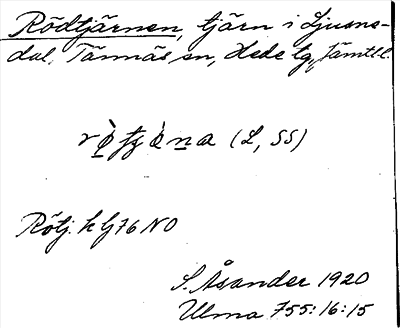 Rödtjärnen, tjärn i Ljusne-
dal, Tännäs sn, Hede tg, Jämtl l.
(L, SS)
Rölj. k bj 76 NO
S. Åsander 1920
Ulma 755:16:15